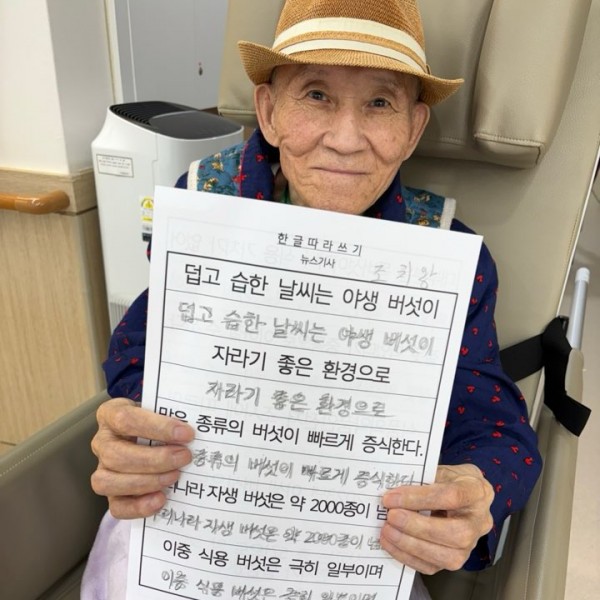 한글따라쓰기
뉴스기사
덥고 습한 날씨는 야생 버섯이
덥고 습한 날씨는 야생 버섯이
자라기 좋은 환경으로
자라기 좋은 환경으로
많은 종류의 버섯이 빠르게 증식한다.
종류의 버섯이 빠르게 증식한다
리나라 자생 버섯은 약 2000종이 넘
리나라 자생 버섯은 약 2000종이 넘
이중 식용 버섯은 극히 일부이며
이중 식용 버섯은 극히 일부이며